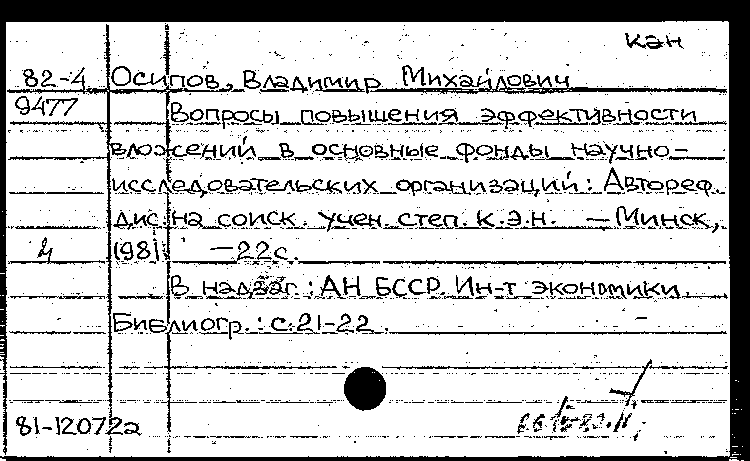 кэн
82-4 Осипов, Владимир Михайлович
9477 Вопросы повышения эффективности
вложений в основные фонды научно-
исследовательских организаций: Автореф.
дис. на соиск. учен. степ. к.э.н. — Минск,
1981. — 22 с.
В надзаг.: АН БССР. Ин-т экономики.
Библиогр.: с. 21-22.
81-12072а